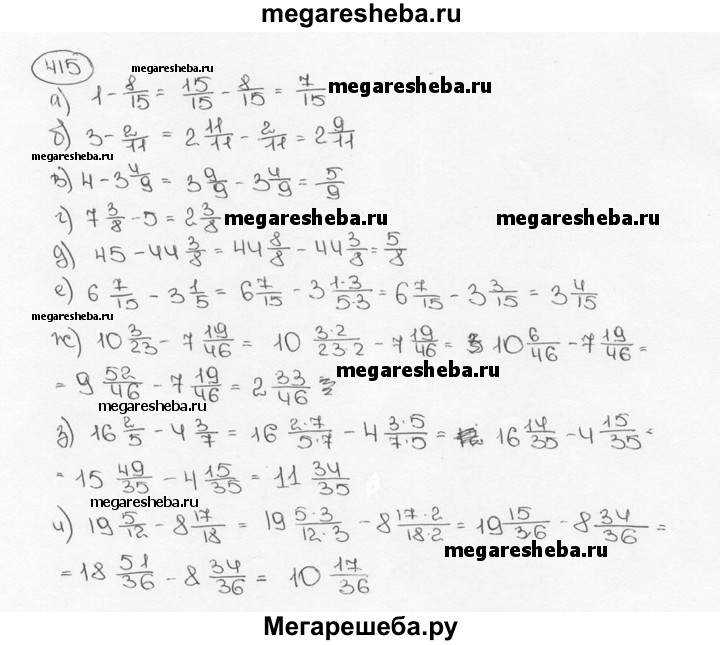 megaresheba.ru
415
megaresheba.ru
а) 1 - 8/15 = 15/15 - 8/15 = 7/15 megaresheba.ru
б) 3 - 2/11 = 2 11/11 - 2/11 = 2 9/11
megaresheba.ru
в) 4 - 3 4/9 = 3 9/9 - 3 4/9 = 5/9
г) 7 3/8 - 5 = 2 3/8 megaresheba.ru megaresheba.ru
д) 45 - 44 3/8 = 44 8/8 - 44 3/8 = 5/8
е) 6 7/15 - 3 1/5 = 6 7/15 - 3 1·3/5·3 = 6 7/15 - 3 3/15 = 3 4/15
megaresheba.ru
ж) 10 3/23 - 7 19/46 = 10 3·2/23·2 - 7 19/46 = 10 6/46 - 7 19/46 =
= 9 52/46 - 7 19/46 = 2 33/46 megaresheba.ru
megaresheba.ru
з) 16 2/5 - 4 3/7 = 16 2·7/5·7 - 4 3·5/7·5 = 16 14/35 - 4 15/35 =
= 15 49/35 - 4 15/35 = 11 34/35
megaresheba.ru
и) 19 5/12 - 8 17/18 = 19 5·3/12·3 - 8 17·2/18·2 = 19 15/36 - 8 34/36 =
megaresheba.ru
= 18 51/36 - 8 34/36 = 10 17/36
Мегарешеба.ру